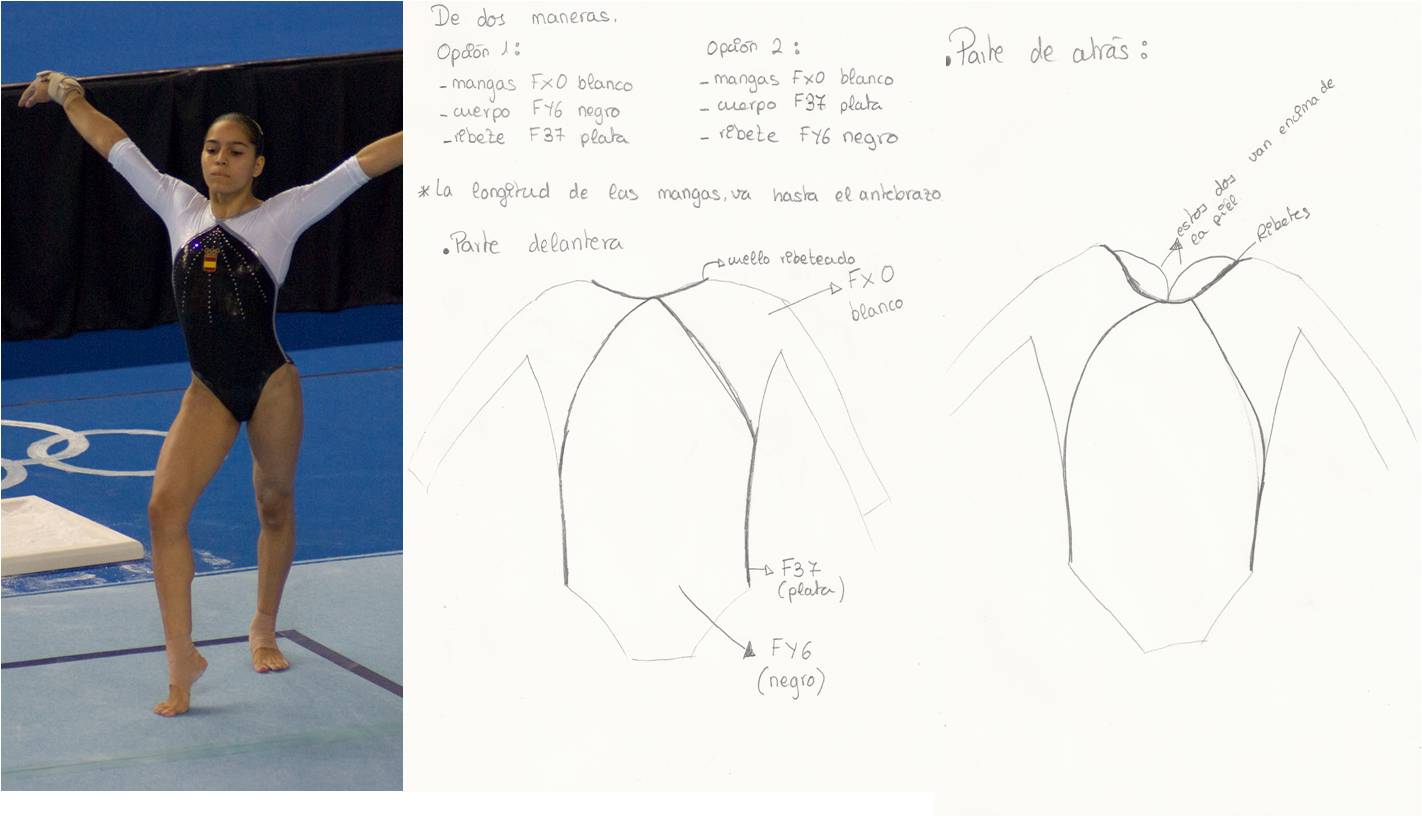 De dos maneras.
Opción 1:
- mangas FX0 blanco
- cuerpo FY6 negro
- ribete F37 plata
Opción 2:
- mangas FX0 blanco
- cuerpo F37 plata
- ribete FY6 negro
* La longitud de las mangas, va hasta el antebrazo
• Parte delantera
cuello ribeteado
FX0
blanco
F37
(plata)
FY6
(negro)
• Parte de atrás:
estos dos van encima de
la piel
Ribetes